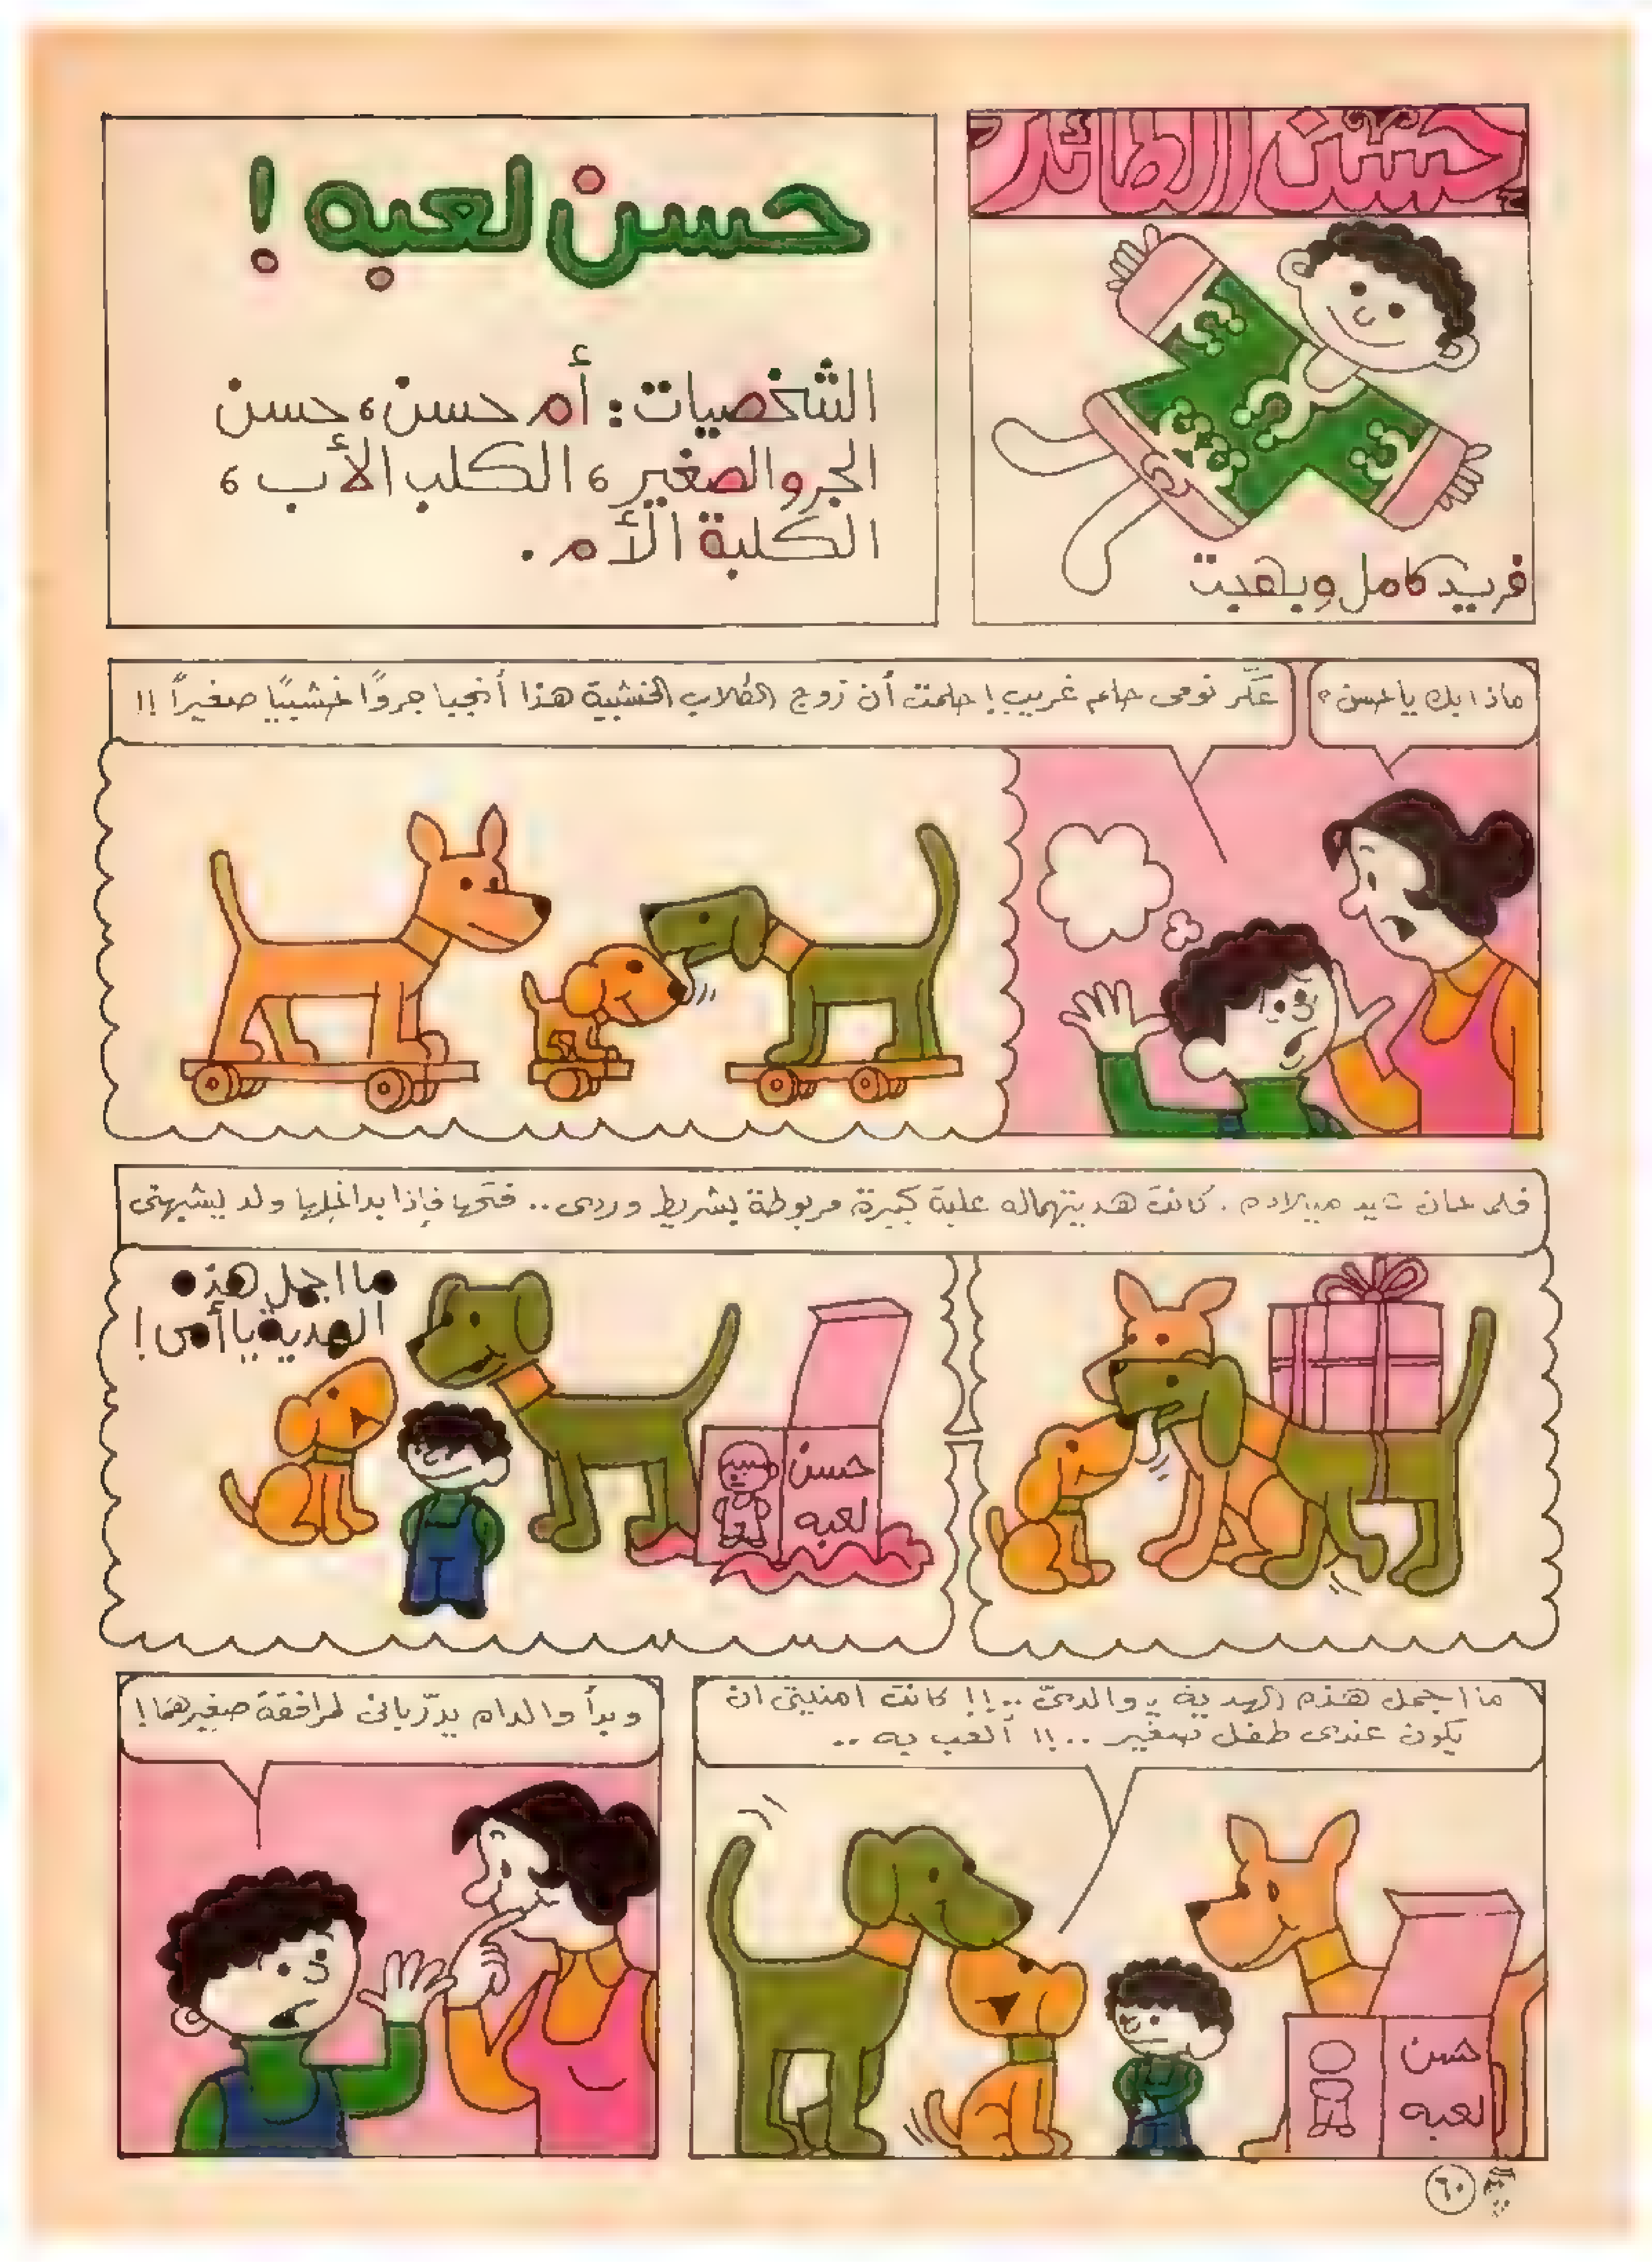 حسن الطائر
فريد كامل وبهجت
حسن لعبه !
الشخصيات : أم حسن ، حسن
الجرو الصغير ، الكلب الأب ،
الكلبة الأم .
ماذا بك يا حسن ؟
عكّر نومى حلم غريب ! حلمت أن زوج الكلاب الخشبية هذا أنجبا جروًا خشبيًا صغيراً !!
فلما حان عيد ميلاده . كانت هديتهما له علبة كبيرة مربوطة بشريط وردى .. فتحها فإذا بداخلها ولد يشبهنى
ما اجمل هذه
الهدية يا أمى !
حسن
لعبه
ما اجمل هذه الهدية يا والدىّ ..!! كانت امنيتى ان
يكون عندى طفل صغير ..!! ألعب به ..
حسن
لعبه
وبدأ والداه يدّربانى لمرافقة صغيرهما !
٦٠